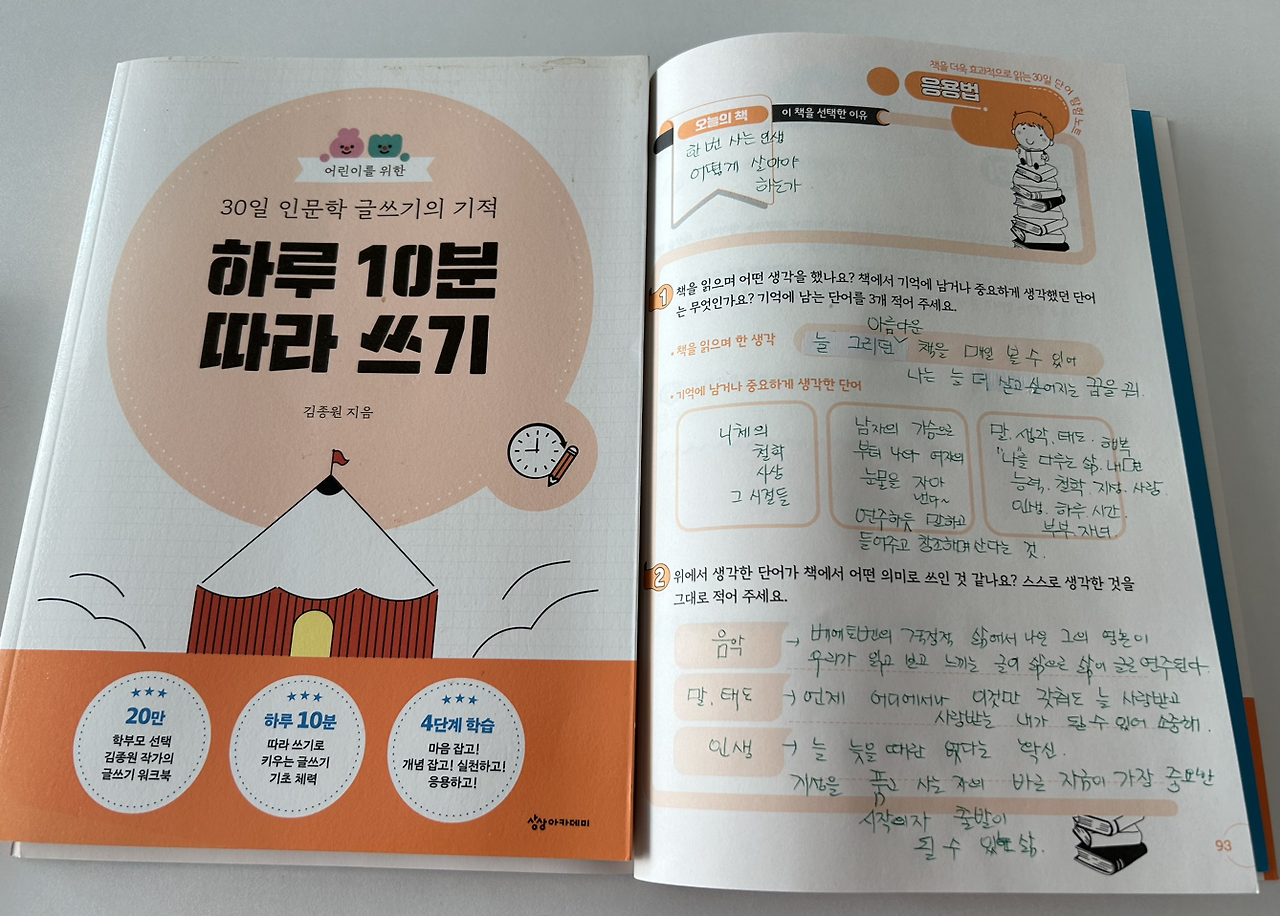 어린이를 위한
30일 인문학 글쓰기의 기적
하루 10분
따라 쓰기
김종원 지음
20만
학부모 선택
김종원 작가의
글쓰기 워크북
하루 10분
따라 쓰기로
키우는 글쓰기
기초 체력
4단계 학습
마음 잡고!
개념 잡고! 실천하고!
응용하고!
상상아카데미
책을 더욱 효과적으로 읽는 30일 단어 탐험 노트
응용법
오늘의 책
이 책을 선택한 이유
한 번 사는 인생
어떻게 살아야
하는가
1 책을 읽으며 어떤 생각을 했나요? 책에서 기억에 남거나 중요하게 생각했던 단어
는 무엇인가요? 기억에 남는 단어를 3개 적어 주세요.
• 책을 읽으며 한 생각
아름다운
늘 그리던 책을 매일 볼 수 있어
나는 늘 더 살고 싶어지는 꿈을 꿔.
• 기억에 남거나 중요하게 생각한 단어
니체의
철학
사상
그 시절들
남자의 가슴으로
부터 나와 여자의
눈물을 자아
낸다~
연주하듯 말하고
들어주고 창조하며 산다는 것.
말. 생각. 태도. 행복
"나"를 다루는 삶. 내면
능력. 철학. 지성. 사랑.
인생. 하루. 시간.
부부. 자녀.
2 위에서 생각한 단어가 책에서 어떤 의미로 쓰인 것 같나요? 스스로 생각한 것을
그대로 적어 주세요.
음악 → 베에토벤의 긍정적 삶에서 나온 그의 영혼이
우리가 읽고 보고 느끼는 글이 삶으로 삶이 글로 연주된다
말. 태도 → 언제 어디에서나 이것만 갖춰도 늘 사랑받고
사랑받는 내가 될 수 있어 소중해.
인생 → 늘 늦을 때란 없다는 확신.
지성을 품고 사는 자의 바로 지금이 가장 중요한
시작이자 출발이
될 수 있는 삶.
93